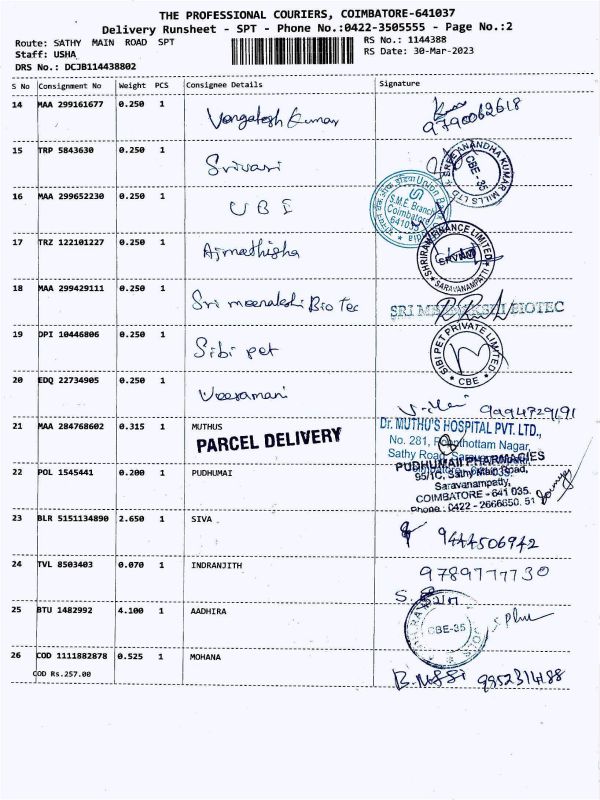 THE PROFESSIONAL COURIERS, COIMBATORE-641037
Delivery Runsheet - SPT - Phone No.:0422-3505555 - Page No.:2
Route: SATHY MAIN ROAD SPT RS No.: 1144388
Staff: USHA RS Date: 30-Mar-2023
DRS No.: DCJB114438802
S No Consignment No Weight PCS Consignee Details Signature
14 MAA 299161677 0.250 1 Vengatesh Kumar
9790062618
15 TRP 5843630 0.250 1 Srivari
SREE ANANDHA KUMAR MILLS LTD CBE-35
16 MAA 299652230 0.250 1 U B I
Union Bank
S.M.E. Branch
Coimbatore
641035
17 TRZ 122101227 0.250 1 Ajmathisha
SHRIRAM FINANCE LIMITED
SARAVANAMPATTI
18 MAA 299429111 0.250 1 Sri meenakshi Bio Tec
SRI MEENAKSHI BIOTEC
19 DPI 10446806 0.250 1 Sibi pet
SIBI PET PRIVATE LIMITED
CBE
20 EDQ 22734905 0.250 1 Veeramani
9994729191
21 MAA 284768602 0.315 1 MUTHUS
PARCEL DELIVERY
Dr. MUTHU'S HOSPITAL PVT. LTD.,
No. 281, Nagar,
Sathy Road,
22 POL 1545441 0.200 1 PUDHUMAI
PUDHUMAI PHARMACIES
95/1C, Sathy Road,
Saravanampatty,
COIMBATORE - 641 035.
Phone : 0422 - 2666650, 51
23 BLR 5151134890 2.650 1 SIVA
9444506942
24 TVL 8503403 0.070 1 INDRANJITH
9789777730
25 BTU 1482992 4.100 1 AADHIRA
CBE-35
26 COD 1111882878 0.525 1 MOHANA
COD Rs.257.00
9952314188